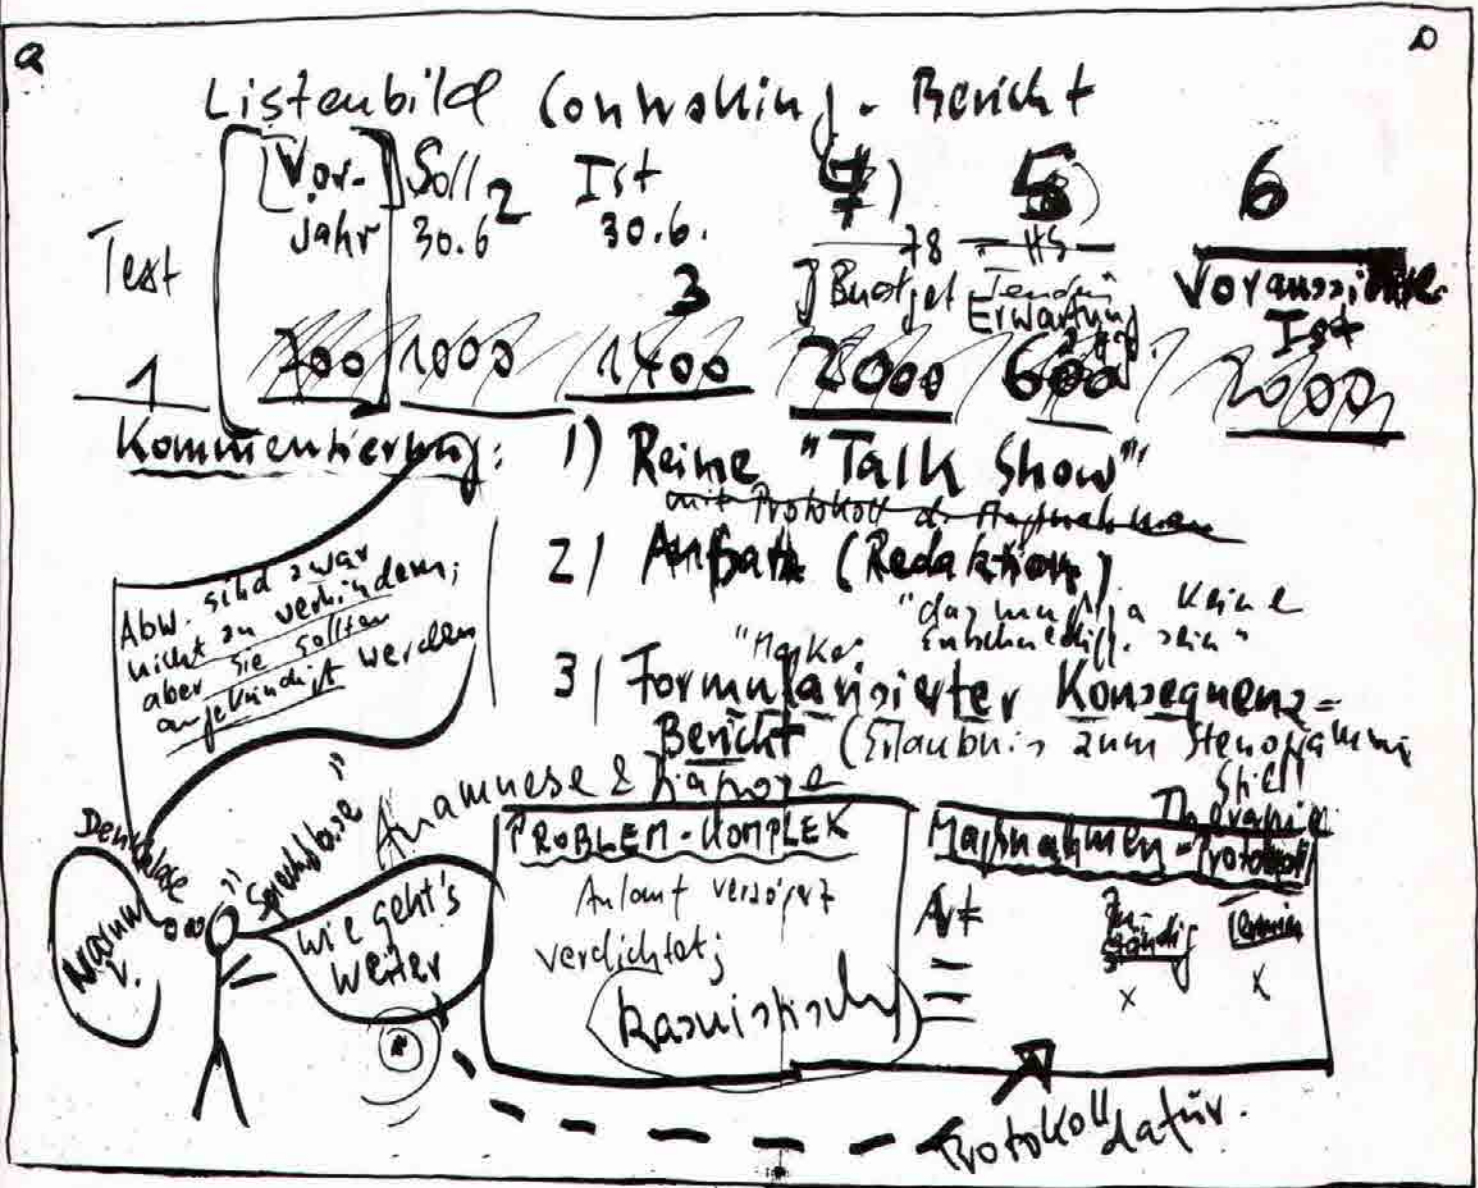 Listenbild Controlling-Bericht
Text [Vor-jahr] Soll 30.6 Ist 30.6.
1 2 3 5 6
Budget Erwartung Voraussichtl. Ist
700 1000 1400 2000 600 2000
Kommentierung: 1) Reine "Talk Show"
mit Protokoll d. Maßnahmen
2) Aufsatz (Redaktion)
"das muß ja keine
Entschuldig. sein"
3) Formularisierter Konsequenz=
Bericht (Erlaubnis zum Stenogramm
Stil)
Abw. sind zwar
nicht zu verhindern;
aber sie sollten
angekündigt werden
Anamnese & Diagnose
Therapie
Denkblase
Warum
"Sprechblase"
wie geht's
weiter
PROBLEM-KOMPLEX
Anlauf verzögert
verdichtet;
Kasuistisch
Maßnahmen-Protokoll
Art Zuständig Termin
x x
Protokoll dafür.